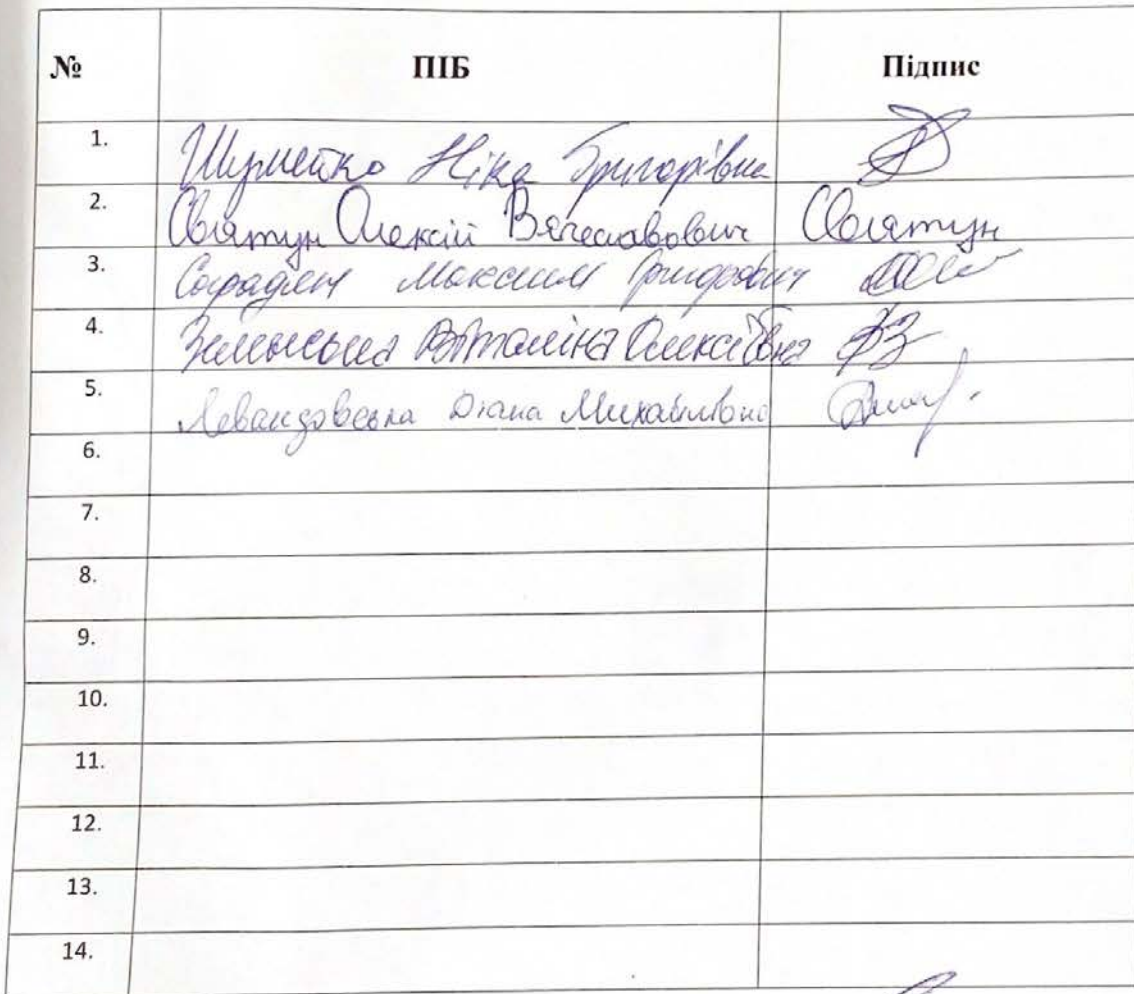 № ПІБ Підпис
1. Шумейко Ніка Григорівна
2. Святун Олексій Вячеславович Святун
3. Максим
4. Віталіна Олексіївна
5. Левандовська Діана Михайлівна
6.
7.
8.
9.
10.
11.
12.
13.
14.